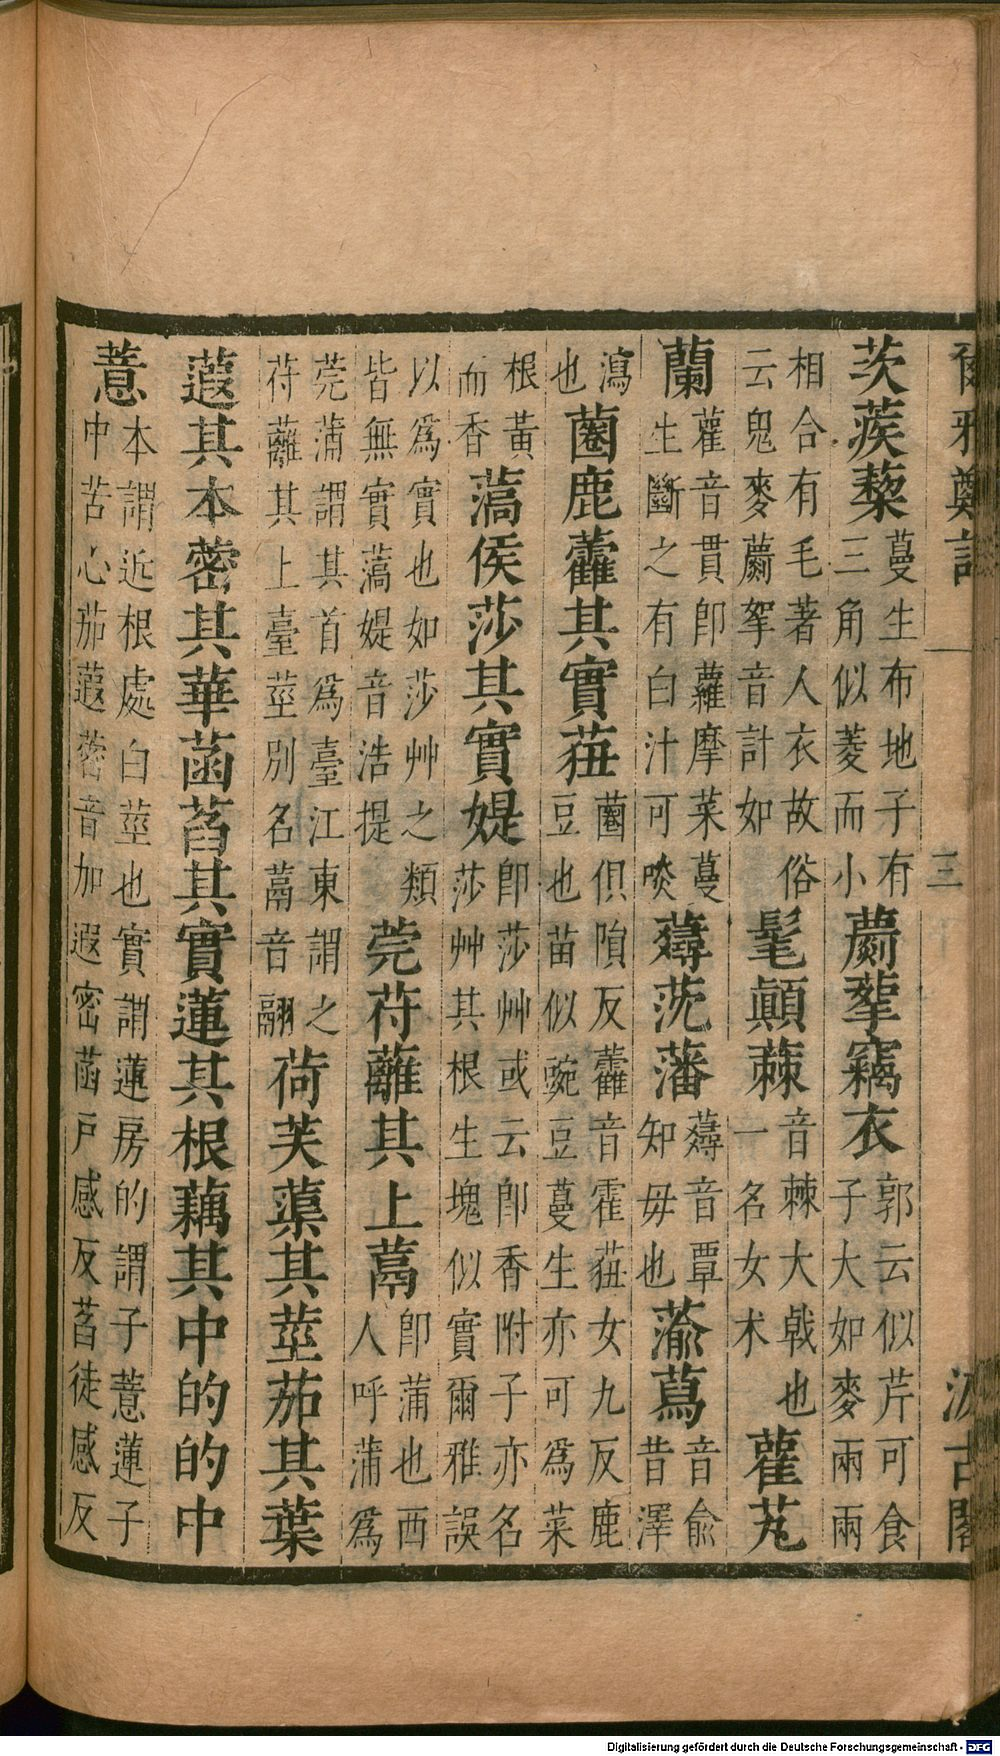 爾雅鄭註 三 汲古閣
茨蒺藜蔓生布地子有三角似菱而小蘮蒘竊衣郭云似芹可食子大如麥兩兩
相合有毛著人衣故俗云鬼麥蘮挐音計如髦顛蕀音棘大戟也一名女木雚芄
蘭雚音貫即蘿摩菜蔓生斷之有白汁可啖蕁莐藩蕁音覃知毋也蕍蕮音俞昔澤
瀉也蔨鹿藿其實莥蔨俱隕反藿音霍莥女九反鹿豆也苗似豌豆蔓生亦可爲菜
根黃而香薃侯莎其實媞即莎艸或云即香附子亦名莎艸其根生塊似實爾雅誤
以爲實也如莎艸之類皆無實薃媞音浩提莞苻蘺其上蒚即蒲也西人呼蒲爲
莞蒲謂其首爲臺江東謂之苻蘺其上臺莖別名蒚音翮荷芙蕖其莖茄其葉
蕸其本蔤其華菡萏其實蓮其根藕其中的的中
薏本謂近根處白莖也實謂蓮房的謂子薏蓮子中苦心茄蕸蔤音加遐密菡戶感反萏徒感反
Digitalisierung gefördert durch die Deutsche Forschungsgemeinschaft - DFG